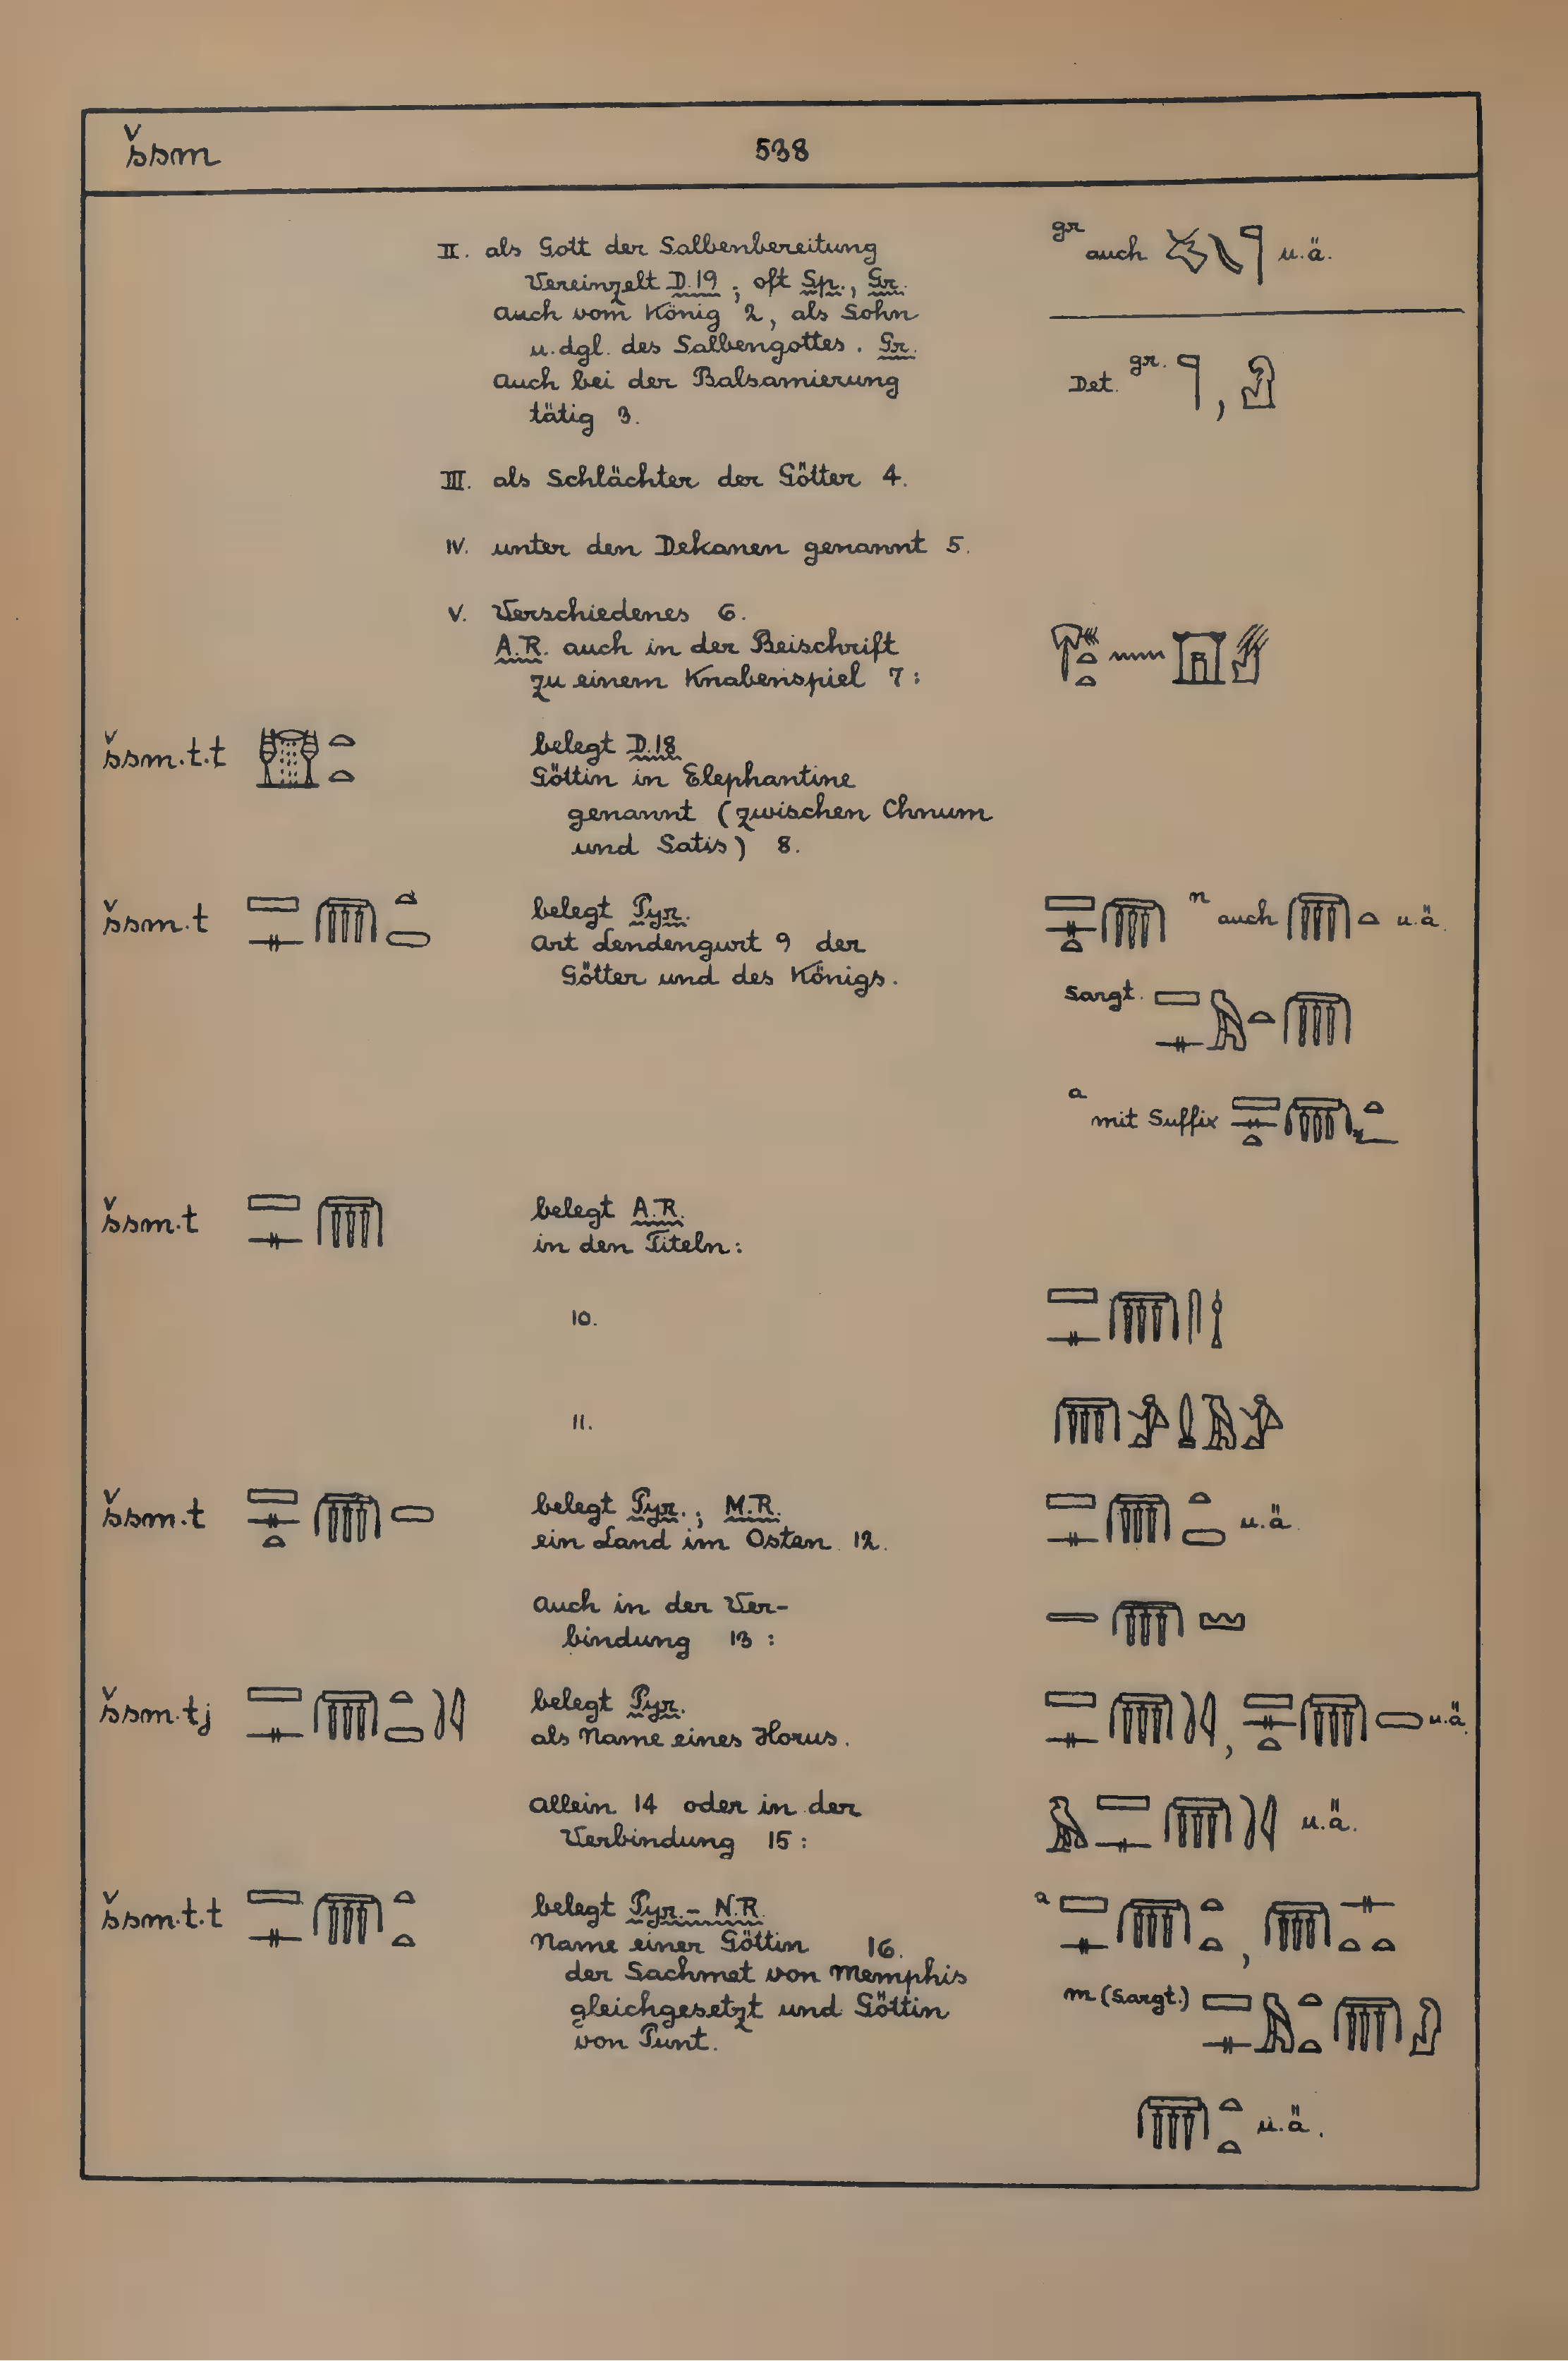 šsm 538
II. als Gott der Salbenbereitung
gr auch u.ä.
Vereinzelt D.19; oft Sp., Gr.
auch vom König 2, als Sohn
u.dgl. des Salbengottes. Gr.
Det. gr. ,
auch bei der Balsamierung
tätig 3.
III. als Schlächter der Götter 4.
IV. unter den Dekanen genannt 5.
V. Verschiedenes 6.
A.R. auch in der Beischrift
zu einem Knabenspiel 7:
šsm.t.t belegt D.18
Göttin in Elephantine
genannt (zwischen Chnum
und Satis) 8.
šsm.t belegt Pyr. n auch u.ä.
Art Lendengurt 9 der
Götter und des Königs.
Sargt.
a mit Suffix
šsm.t belegt A.R.
in den Titeln:
10.
11.
šsm.t belegt Pyr.; M.R. u.ä.
ein Land im Osten 12.
auch in der Ver-
bindung 13:
šsm.tj belegt Pyr. , u.ä.
als Name eines Horus.
allein 14 oder in der u.ä.
Verbindung 15:
šsm.t.t belegt Pyr.- N.R. a ,
Name einer Göttin 16.
der Sachmet von Memphis
m (Sargt.)
gleichgesetzt und Göttin
von Punt.
u.ä.